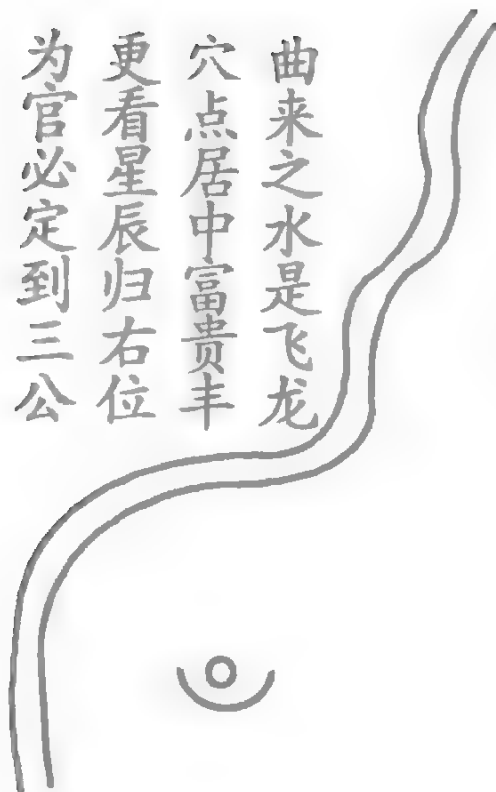 曲来之水是飞龙
穴点居中富贵丰
更看星辰归右位
为官必定到三公